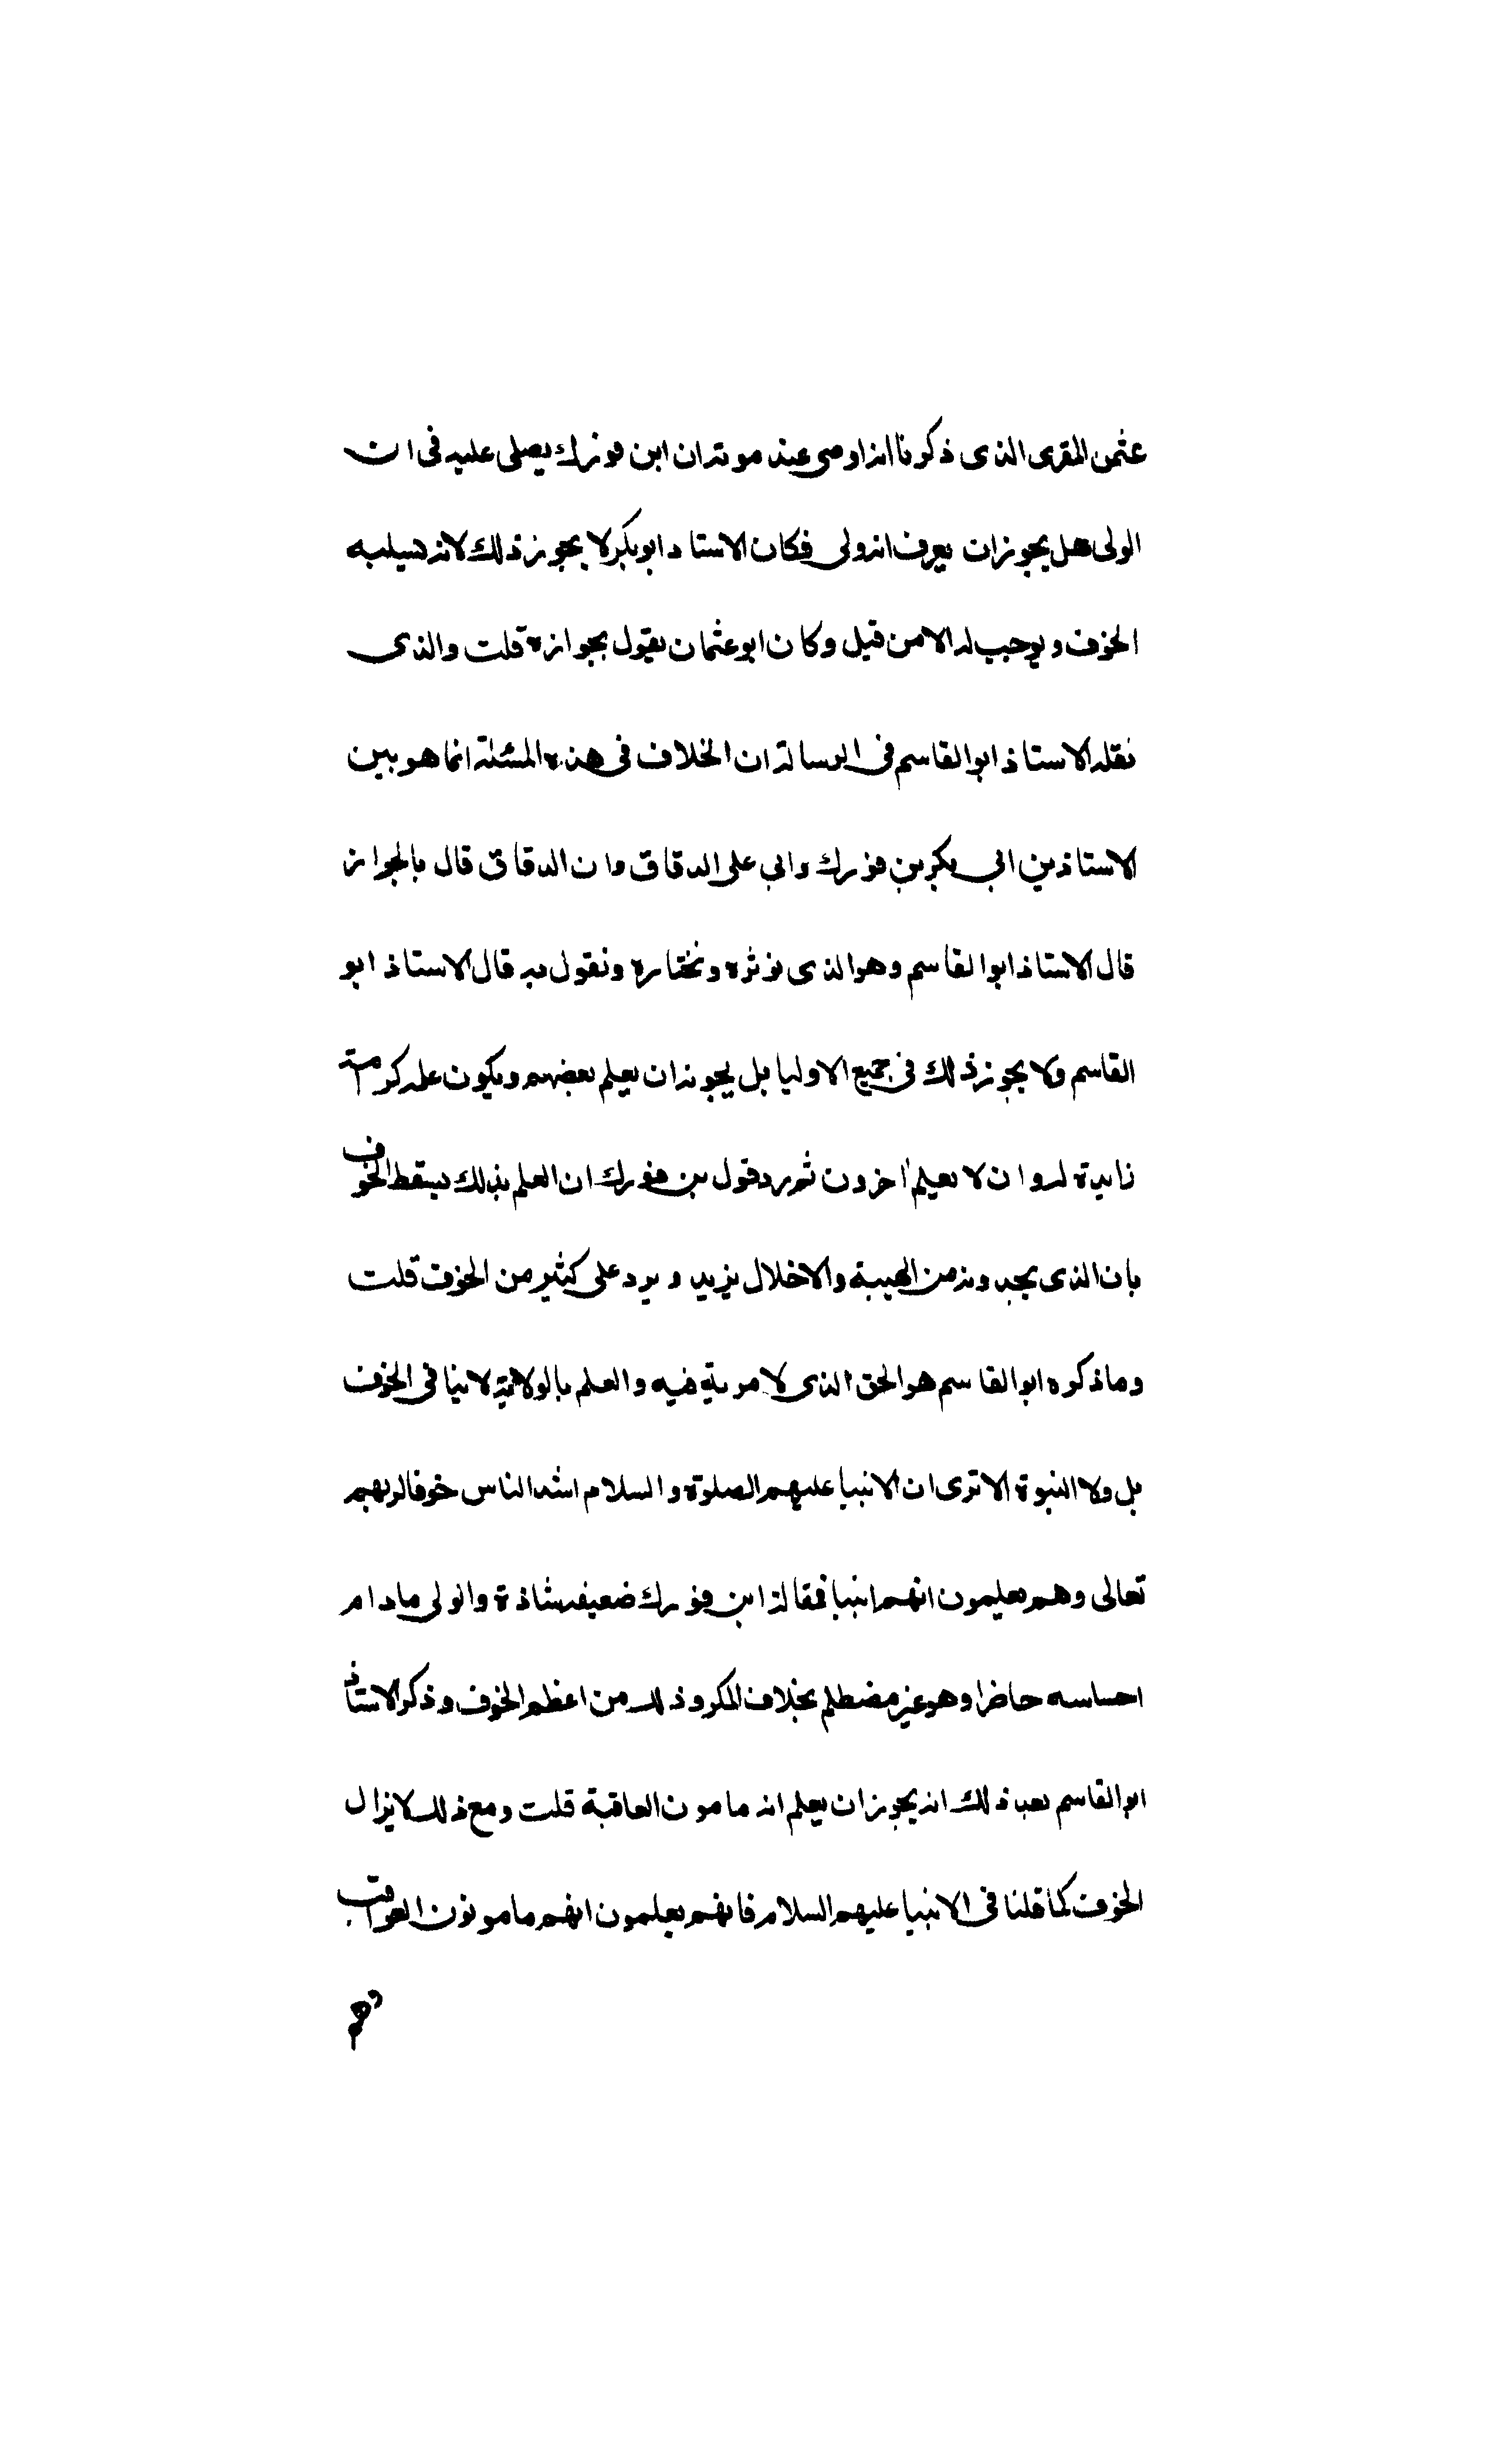 عثمن المقرى الذى ذكرنا انه اوصى عند موته ان ابن فورك يصلى عليه فى ان
الولى هل يجوز ان يعرف انه ولى فكان الاستاد ابو بكر لا يجوز ذلك لانه يسلبه
الخوف و يوجب له الامن قيل وكان ابو عثمان يقول بجوازه قلت والذى
نقله الاستاذ ابو القاسم فى الرسالة ان الخلاف فى هذه المسئلة انما هو بين
الاستاذين ابى بكر بن فورك وابى على الدقاق وان الدقاق قال بالجواز
قال الاستاذ ابو القاسم وهو الذى نوثره ونختاره ونقول به قال الاستاذ ابو
القاسم ولا يجوز ذلك فى جميع الاوليا بل يجوز ان يعلم بعضهم ويكون علمه كرامته
زايدة له وان لا يعلم اخرون ثم رد قول بن فورك ان العلم بذلك يسقط الخوف
بان الذى يجدونه من الهيبة والاخلال يزيد و يرد على كثير من الخوف قلت
وما ذكره ابو القاسم هو الحق الذى لا مرية فيه والعلم بالولاية لا ينافى الخوف
بل ولا النبوة الا ترى ان الانبيا عليهم الصلوة والسلام اشد الناس خوفا لربهم
تعالى وهم يعلمون انهم انبيا فمقالة ابن فورك ضعيفه شاذة والولى مادام
احساسه حاضرا وهو غير مضطلم بخلاف المكر وذلك من اعظم الخوف وذكر الاستاذ
ابو القاسم بعد ذلك انه يجوز ان يعلم انه مامون العاقبة قلت ومع ذلك لا يزال
الخوف كما قلنا فى الانبيا عليهم السلام فانهم يعلمون انهم مامونون العواقب
وهم